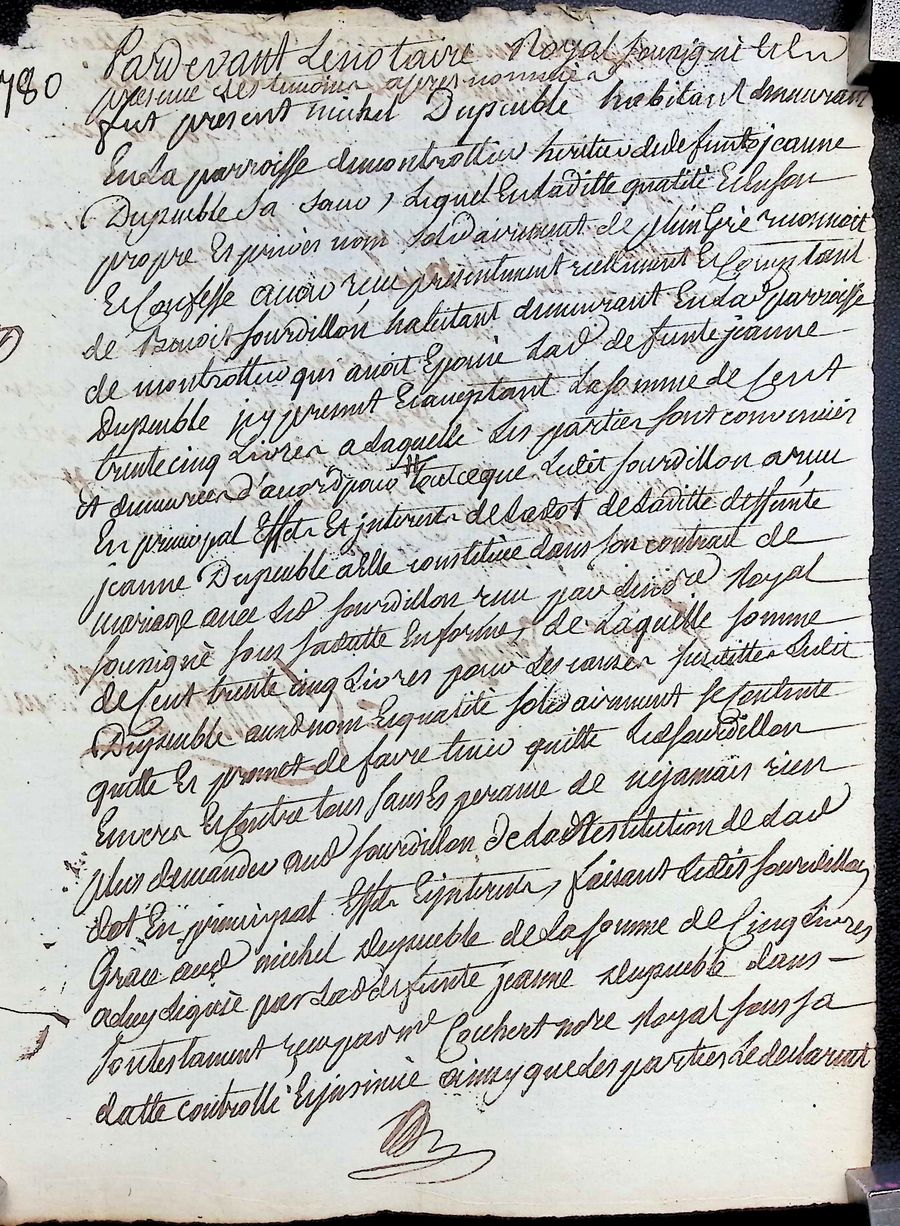 780
Pardevant Lenotaire Royal sousigné Et En
presence des temoins apres nommés
fut présent michel Dupeuble habitant demeurant
En La parroisse demontrottier heritier dedefunte jeanne
Dupeuble Sa soeur, Lequel En Laditte qualité Et En son
propre Et privés nom solidairement de plein Gré reconnoit
Et Confesse avoir reçu présentement réellement Et Comptant
de Benoit sourdillon habitant demeurant En Lad parroisse
de montrottier qui avoit Epousé Lad defunte jeanne
Dupeuble icy present Et aceptant La somme de Cent
trente cinq Livres a Laquelle Les parties sont convenües
Et demeurées d'acord pour tout ce que Ledit sourdillon a reçu
En principal Effets Et interets de La dot de Laditte deffunte
jeanne Dupeuble a Elle constituée dans son contrat de
mariage avec Led sourdillon reçu par Le nore Royal
sousigné sous sa datte En forme, de Laquelle somme
de Cent trente cinq Livres pour Les causes susdittes Ledit
Dupeuble aud nom Et qualité solidairement se Contente
quitte Et promet de faire tenir quitte Led sourdillon
Envers Et Contre tous sans Esperance de ne jamais rien
plus demander aud sourdillon de La restitution de Lad
dot En principal Effets Et interets, faisant Ledit sourdillon
Grace aud michel Dupeuble de La somme de Cinq Livres
a Luy Leguée par Lad defunte jeanne Dupeuble dans
son testament reçu par me Couhert nore Royal sous sa
datte controllé Et insinué ainsy que Les parties Le declarent